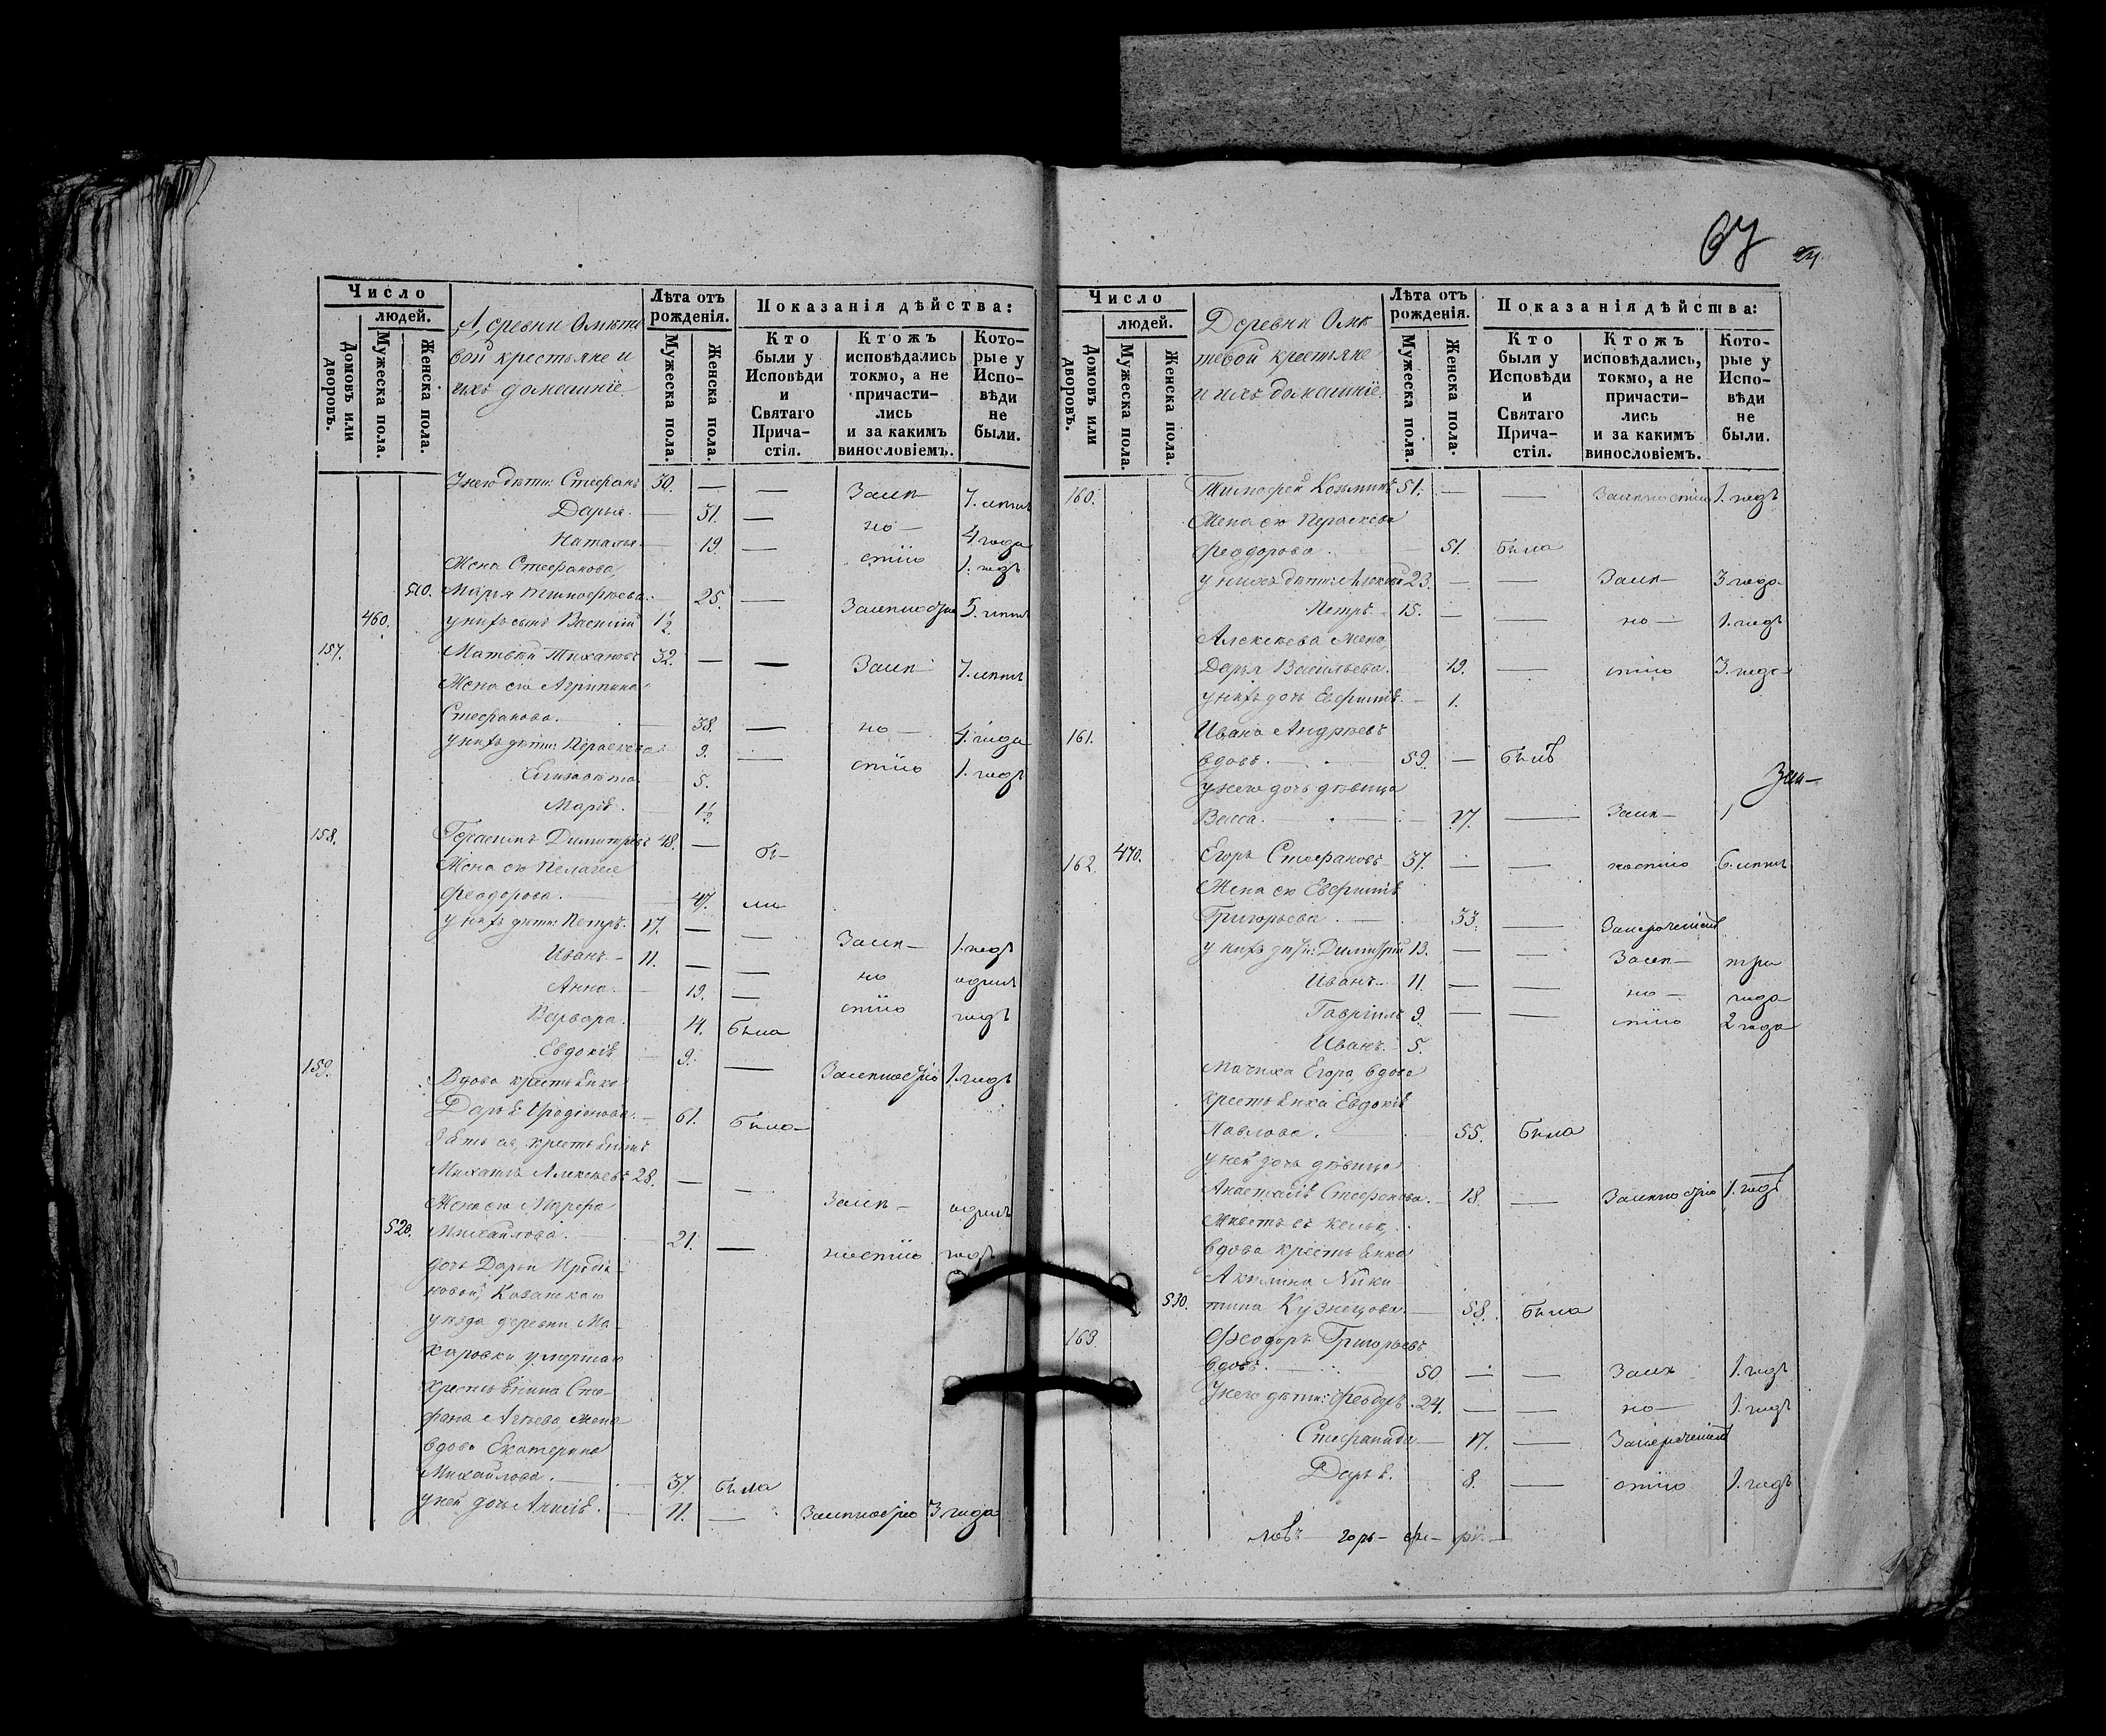 67
Число
людей.
Домовъ или дворовъ.
Мужеска пола.
Женска пола.
Деревни Омѣте
вой крестьяне и
ихъ домашніе
Лѣта отъ рожденія.
Мужеска пола.
Женска пола.
Показанія дѣйства:
Кто были у Исповѣди и Святаго Прича-стія.
Ктожъ исповѣдались токмо, а не причасти-лись и за какимъ винословіемъ.
Кото-рые у Испо-вѣди не были.
У него дѣти: Стефанъ 30. — — Залѣ— 7. лѣтъ
Дарья. — 31. — но— 4 года
Наталья. — 19. — стію 1. годъ
Жена Стефанова,
510. Марія Тимофѣева. 25. — Залѣностію 5. лѣтъ
460. у нихъ сынъ Василій 1½
157. Матвей Тихановъ 32. — — Залѣ— 7. лѣтъ
Жена его Агрипина
Стефанова. — 38. — но— 4. года
у нихъ дѣти: Параскева 9. — стію 1. годъ
Елизавета 5.
Марія. 1½.
158. Герасимъ Димитріевъ 48. — бы—
Жена его Пелагея
Феодорова. — 47. ли
у нихъ дѣти: Петръ. 17. — — Залѣ— 1. годъ
Иванъ — 11. — — но одинъ
Анна. — 19. — стію годъ
Варвара. 14. была
Евдокія — 9. — Залѣностію 1. годъ
159. Вдова крестьянка
Дарья Иродіонова. — 61. была—
Зять ея, крестьянинъ
Михаилъ Алексѣевъ 28. — — Залѣ— одинъ
Жена его Марфа
520. Михайлова. — 21. — ностію годъ
дочь Дарьи Иродіо-
новой, Казанскаго
уѣзда деревни Ма-
каровки умершаго
крестьянина Сте-
фана Агѣева, жена
вдова Екатерина
Михайлова. — 37. была
у ней дочь Анисія. — 11. — Залѣностію 3 года
Число
людей.
Домовъ или дворовъ.
Мужеска пола.
Женска пола.
Деревни Омѣ-
тевой крестьяне
и ихъ домашніе.
Лѣта отъ рожденія.
Мужеска пола.
Женска пола.
Показанія дѣйства:
Кто были у Исповѣди и Святаго Прича-стія.
Ктожъ исповѣдались, токмо, а не причасти-лись и за какимъ винословіемъ.
Кото-рые у Испо-вѣди не были.
160. Тимофей Козьминъ 51. — — Залѣностію 1. годъ
Жена его Параскева
Феодорова. — 51. была
у нихъ дѣти: Алексей 23. — — Залѣ— 3. года
Петръ — 15. — — но— 1. годъ
Алексѣева жена,
Дарья Васильева. 19. — стію 3. года
у нихъ дочь Евфимія. — 1.
161. Ивана Андреевъ
вдовъ. — 59. — былъ
у него дочь дѣвица
Васса. — 27. — Залѣ—
162. 470. Егоръ Стефановъ 37. — — ностію 6. лѣтъ
Жена его Евфимія
Григорьева. — 33. —
у нихъ дѣти: Димитрій 13. — — Залѣ— три
Иванъ. 11. — — но— года
Гавріилъ 9. — — стію 2 года
Иванъ. — 5.
Мачиха Егора, вдова
крестьянка Евдокія
Павлова. — 55. была
у ней дочь дѣвица
Анастасія Стефанова. — 18. — Залѣностію 1. годъ
Живетъ въ кельѣ,
вдова крестьянка
Акилина Ники-
530. тина Кузнецова. — 58. была
163. Феодоръ Григорьевъ
вдовъ. — 50 — — Залѣ 1. годъ
У него дѣти: Феодоръ. 24. — — но— 1. годъ
Стефанида — 17. —
Дарья. 8. — стію 1. годъ